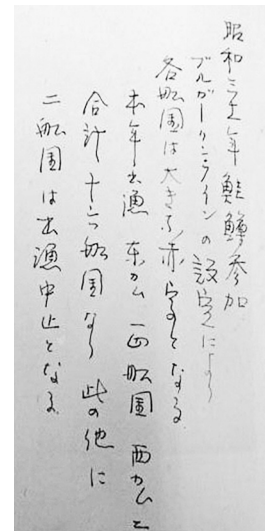 昭和三十一年鮭鱒参加
ブルガーニンラインの設定により
各船团は大きな赤字となる
本年出漁 東カム 一西船团 西カム二
合計十六船团なり 此の他に
二船团は出漁中止となる